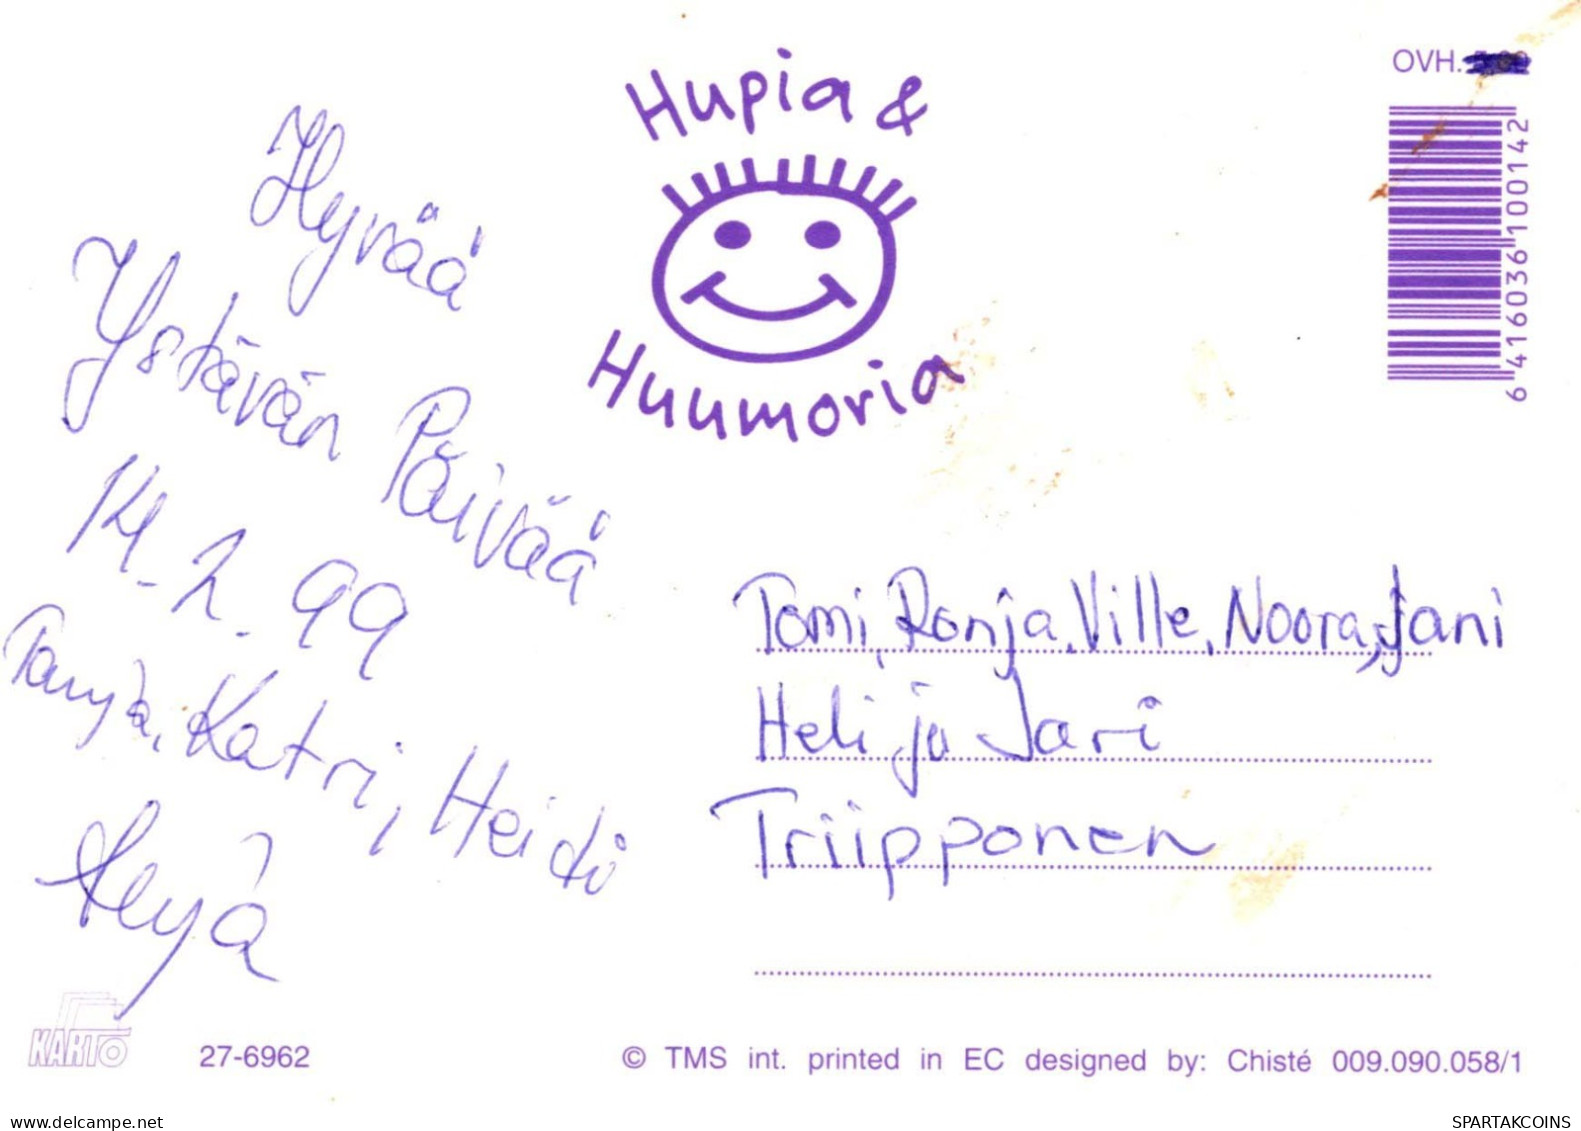 Hyvää
Ystävän Päivää
14.2.99
Tanja, Katri, Heidi
Hupia &
Huumoria
OVH.
6 416036 100142
Tomi, Ronja, Ville, Noora, Jani
Heli ja Jari
Triipponen
KARTO
27-6962
© TMS int. printed in EC designed by: Chisté 009.090.058/1
www.delcampe.net
SPARTAKCOINS